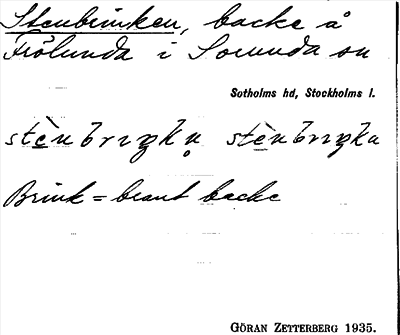 Stenbrinken, backe å
Frölunda i Sorunda sn
Sotholms hd, Stockholms l.
Brink = brant backe
GÖRAN ZETTERBERG 1935.